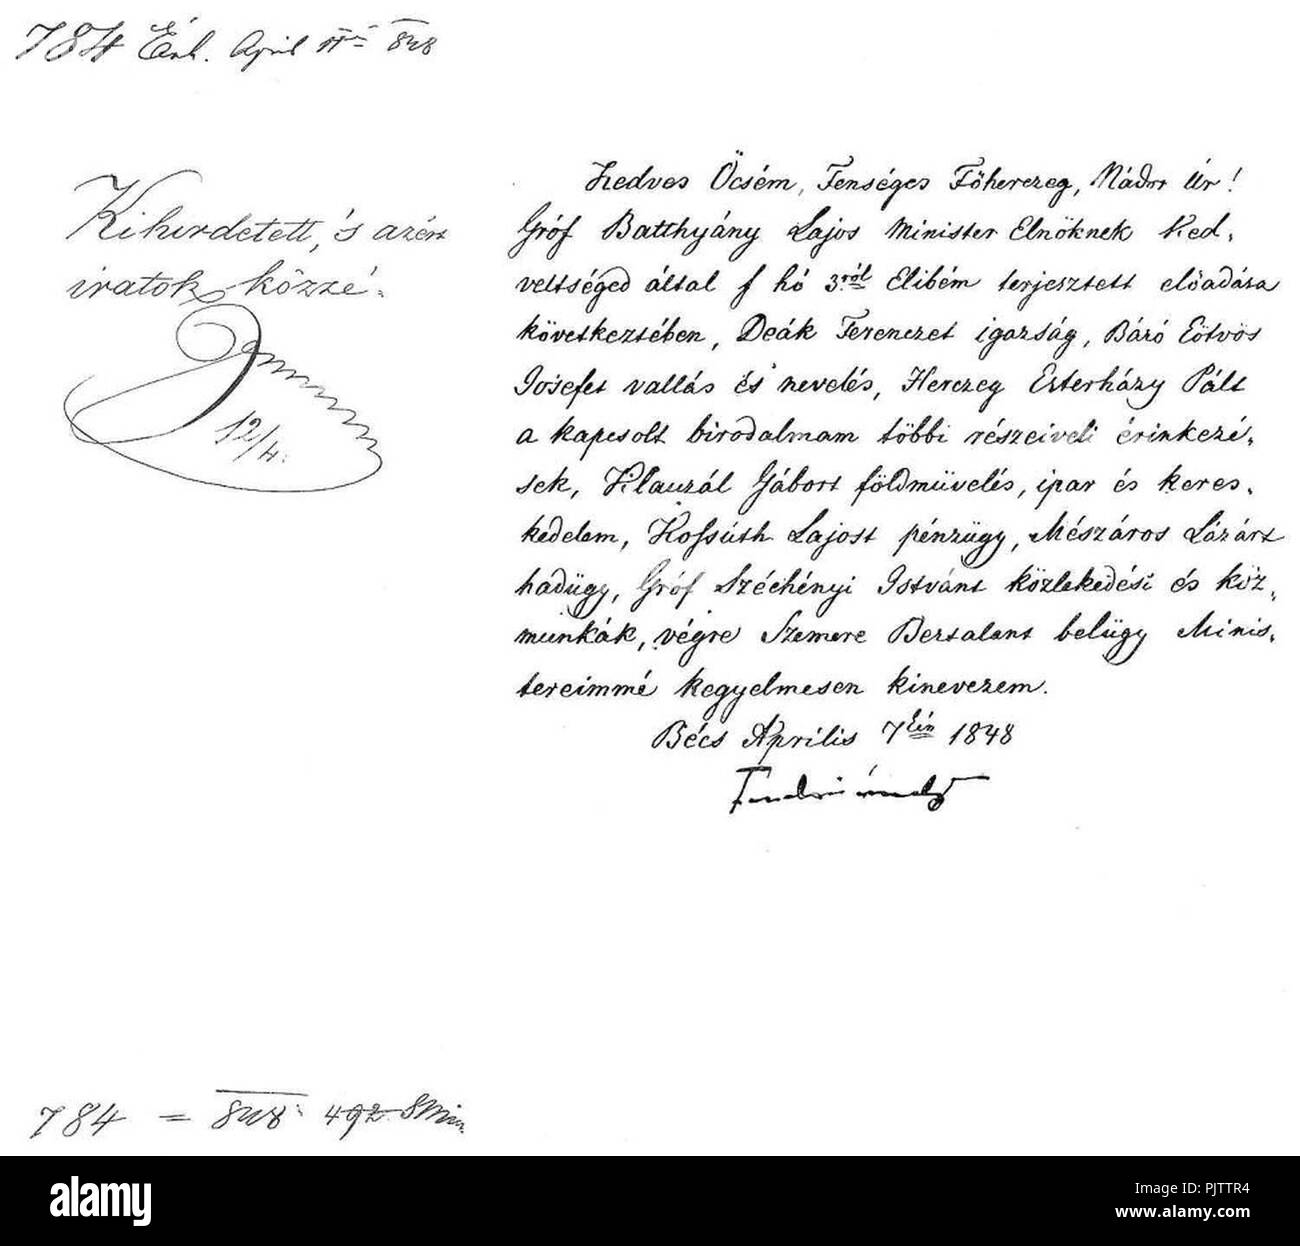 784 Érk. April 11én 848
Kihirdetett, 's azért
iratok közzé.
12/4.
Kedves Öcsém, Fenséges Főherczeg, Nádor Úr!
Gróf Batthyány Lajos Minister Elnöknek Ked,
veltséged által f hó 3ról Elibém terjesztett előadása
következtében, Deák Ferenczet igazság, Báró Eötvös
Josefet vallás és nevelés, Herczeg Eszterházy Pált
a kapcsolt birodalmam többi részeiveli érinkezé,
sek, Klauzál Gábort földmüvelés, ipar és keres,
kedelem, Kossúth Lajost pénzügy, Mészáros Lázárt
hadügy, Gróf Széchényi Istvánt közlekedési és köz,
munkák, végre Szemere Bertalant belügy Minis,
tereimmé kegyelmesen kinevezem.
Bécs Április 7én 1848
784 = 848. 492
alamy
Image ID: PJTTR4
www.alamy.com